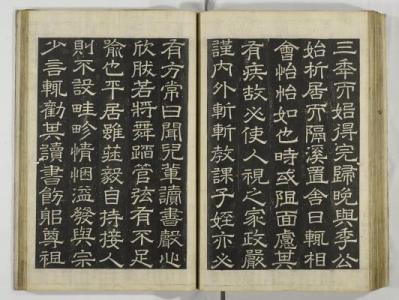 三秊而始得完歸晚與季公
始析居而隔溪置舍日輒相
會怡怡如也時或阻面慮其
有疾故必使人視之家政嚴
謹內外斬斬教課子姪亦必
有方常曰聞兒輩讀書聲心
欣肰若將舞蹈管弦有不足
喻也平居雖莊毅自持接人
則不設畦畛情悃溢發與宗
少言輒勸其讀書飭躬尊祖